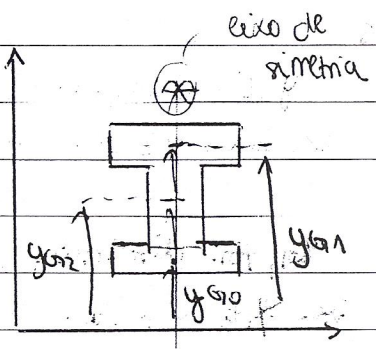 eixo de
simetria
yG2
yG1
yG0